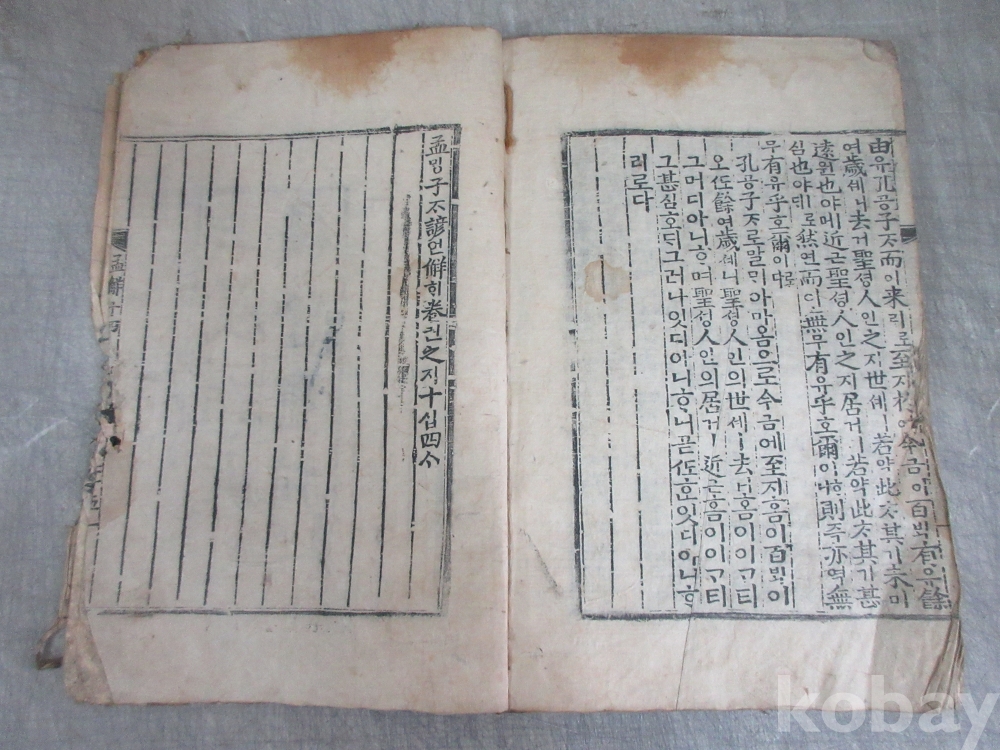 由유孔공子ᄌᆞ而이来ᄅᆡ로至지於어今금이百ᄇᆡᆨ有유餘
여歲셰니去거聖셩人인之지世셰ㅣ若약此ᄎᆞ其기未미
遠원也야ㅣ며近근聖셩人인之지居거ㅣ若약此ᄎᆞ其기甚
심也야ㅣ로ᄃᆡ然연而이無무有유乎호爾이ᄒᆞ니則즉亦역無
무有유乎호爾이
孔공子ᄌᆞ로말ᄆᆡ아마옴으로今금에至지홈이百ᄇᆡᆨ이
오餘여歲셰니聖셩人인의世셰ㅣ去거홈이이ᄀᆞ티
그머디아니ᄒᆞ며聖셩人인의居거ㅣ近근홈이이ᄀᆞ티
그甚심호ᄃᆡ그러나잇디아니ᄒᆞ니곧호잇디아니ᄒᆞ
리로다
孟ᄆᆡᆼ子ᄌᆞ諺언解ᄒᆡ卷권之지十십四ᄉᆞ
孟解十四
kobay